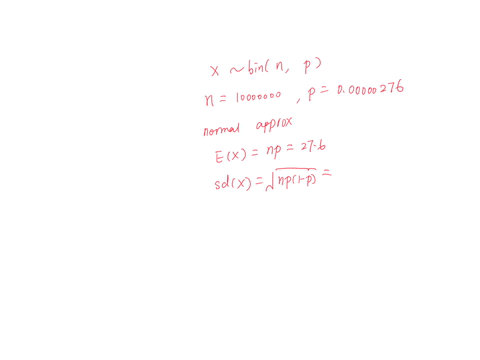 X ~ bin(n, p)
n = 10000000 , p = 0.00000276
normal approx
E(X) = np = 27.6
sd(X) = √np(1-p) =